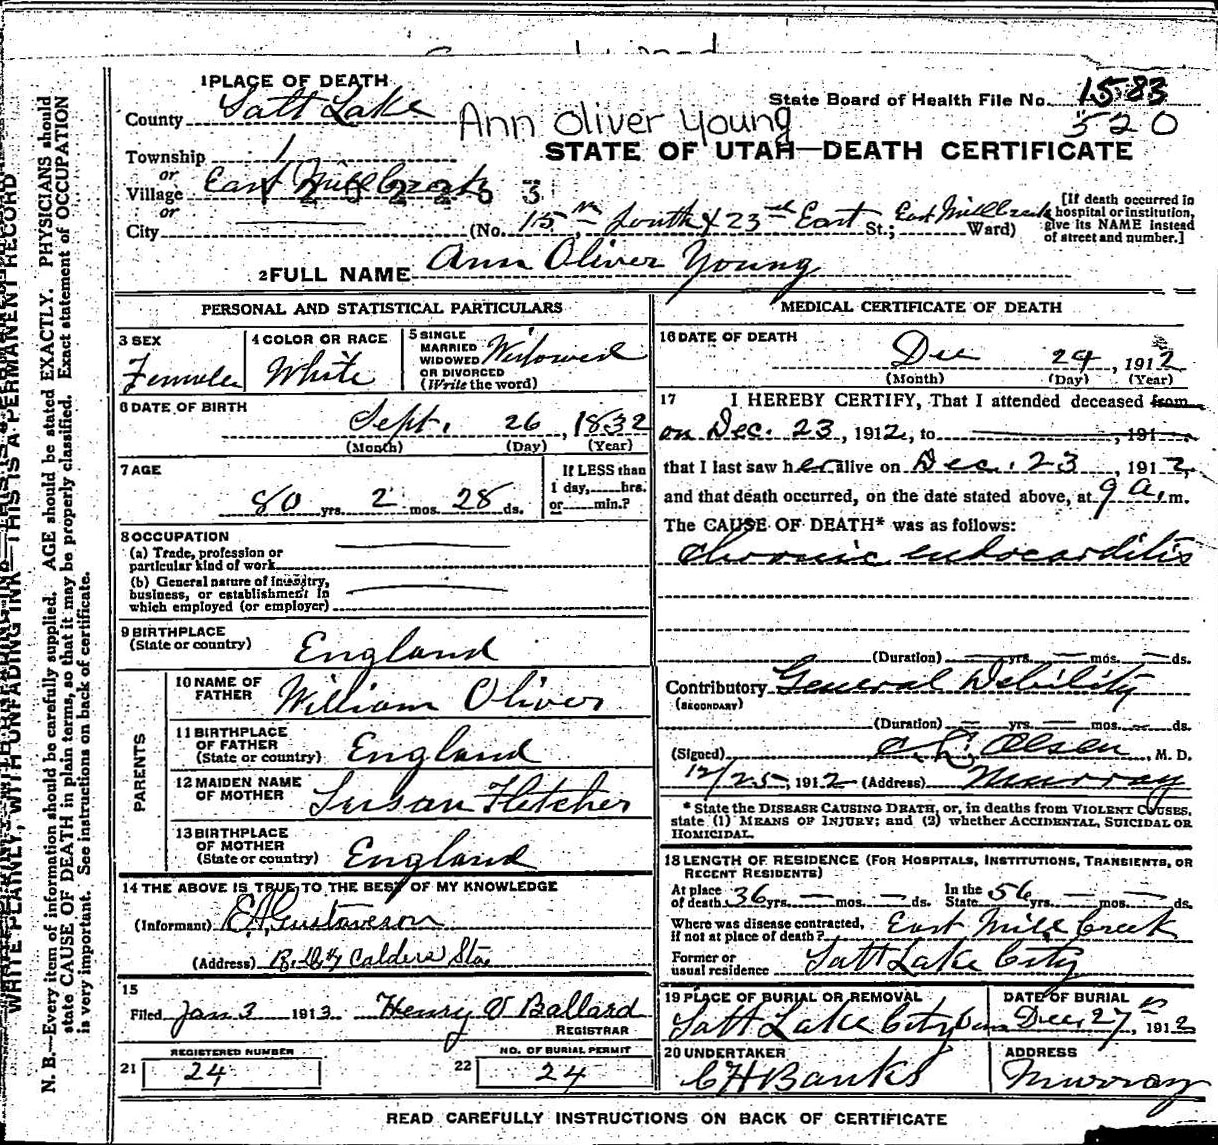 1 PLACE OF DEATH
County Salt Lake
Ann Oliver Young
State Board of Health File No. 1583
520
STATE OF UTAH—DEATH CERTIFICATE
Township 1
or
Village East Mill Creek
or
City
(No. 15th South & 23rd East St.; East Mill Creek Ward)
[If death occurred in
hospital or institution,
give its NAME instead
of street and number.]
2 FULL NAME Ann Oliver Young
PERSONAL AND STATISTICAL PARTICULARS
3 SEX
Female
4 COLOR OR RACE
White
5 SINGLE
MARRIED
WIDOWED
OR DIVORCED
(Write the word)
Widowed
6 DATE OF BIRTH
Sept. 26, 1832
(Month) (Day) (Year)
7 AGE
80 yrs. 2 mos. 28 ds.
If LESS than
1 day, hrs.
or min.?
8 OCCUPATION
(a) Trade, profession or
particular kind of work
(b) General nature of industry,
business, or establishment in
which employed (or employer)
9 BIRTHPLACE
(State or country)
England
PARENTS
10 NAME OF
FATHER
William Oliver
11 BIRTHPLACE
OF FATHER
(State or country)
England
12 MAIDEN NAME
OF MOTHER
Susan Fletcher
13 BIRTHPLACE
OF MOTHER
(State or country)
England
14 THE ABOVE IS TRUE TO THE BEST OF MY KNOWLEDGE
(Informant) E A Gustaveson
(Address) Calders Sta.
15
Filed Jan 3 1913. Henry V Ballard
REGISTRAR
21 REGISTERED NUMBER
24
22 NO. OF BURIAL PERMIT
24
MEDICAL CERTIFICATE OF DEATH
16 DATE OF DEATH
Dec 24, 1912
(Month) (Day) (Year)
17 I HEREBY CERTIFY, That I attended deceased from
on Dec. 23, 1912, to 191
that I last saw her alive on Dec. 23, 1912,
and that death occurred, on the date stated above, at 9 a.m.
The CAUSE OF DEATH* was as follows:
Chronic endocarditis
(Duration) yrs. mos. ds.
Contributory General Debility
(SECONDARY)
(Duration) yrs. mos. ds.
(Signed) C. L. Olsen, M. D.
12/25, 1912 (Address) Murray
* State the DISEASE CAUSING DEATH, or, in deaths from VIOLENT CAUSES,
state (1) MEANS OF INJURY; and (2) whether ACCIDENTAL, SUICIDAL OR
HOMICIDAL.
18 LENGTH OF RESIDENCE (FOR HOSPITALS, INSTITUTIONS, TRANSIENTS, OR
RECENT RESIDENTS)
At place
of death 36 yrs. mos. ds.
In the
State 56 yrs. mos. ds.
Where was disease contracted,
if not at place of death? East Mill Creek
Former or
usual residence Salt Lake City
19 PLACE OF BURIAL OR REMOVAL
Salt Lake City
DATE OF BURIAL
Dec. 27th, 1912
20 UNDERTAKER
C H Banks
ADDRESS
Murray
READ CAREFULLY INSTRUCTIONS ON BACK OF CERTIFICATE
WRITE PLAINLY, WITH UNFADING INK—THIS IS A PERMANENT RECORD
N. B.—Every item of information should be carefully supplied. AGE should be stated EXACTLY. PHYSICIANS should
state CAUSE OF DEATH in plain terms, so that it may be properly classified. Exact statement of OCCUPATION
is very important. See instructions on back of certificate.